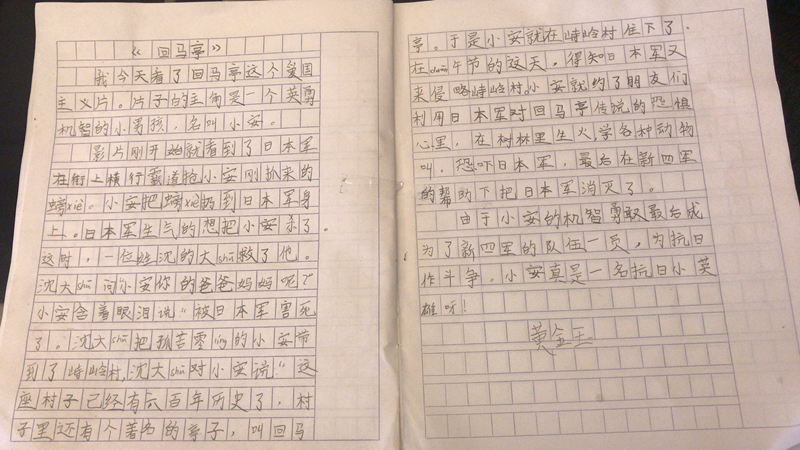 《回马亭》
我今天看了回马亭这个爱国
主义片。片子的主角是一个英勇
机智的小男孩，名叫小安。
影片刚开始就看到了日本军
在街上横行霸道抢小安刚抓来的
螃xiè。小安把螃xiè扔到日本军身
上。日本军生气的想把小安杀了。
这时，一位姓沈的大shū救了他。
沈大shū问小安你的爸爸妈妈呢？
小安含着眼泪说“被日本军害死
了。沈大shū把孤苦零dīng的小安带
到了峙岭村，沈大shū对小安说：“这
座村子已经有六百年历史了，村
子里还有个著名的亭子，叫回马
亭。于是小安就在峙岭村住下了.
在duān午节的这天，得知日本军又
来侵略峙岭村，小安就约了朋友们
利用日本军对回马亭传说的恐惧
心里，在树林里生火，学各种动物
叫，恐吓日本军，最后在新四军
的帮助下把日本军消灭了。
由于小安的机智勇敢最后成
为了新四军的队伍一员，为抗日
作斗争。小安真是一名抗日小英
雄呀！
黄金玉